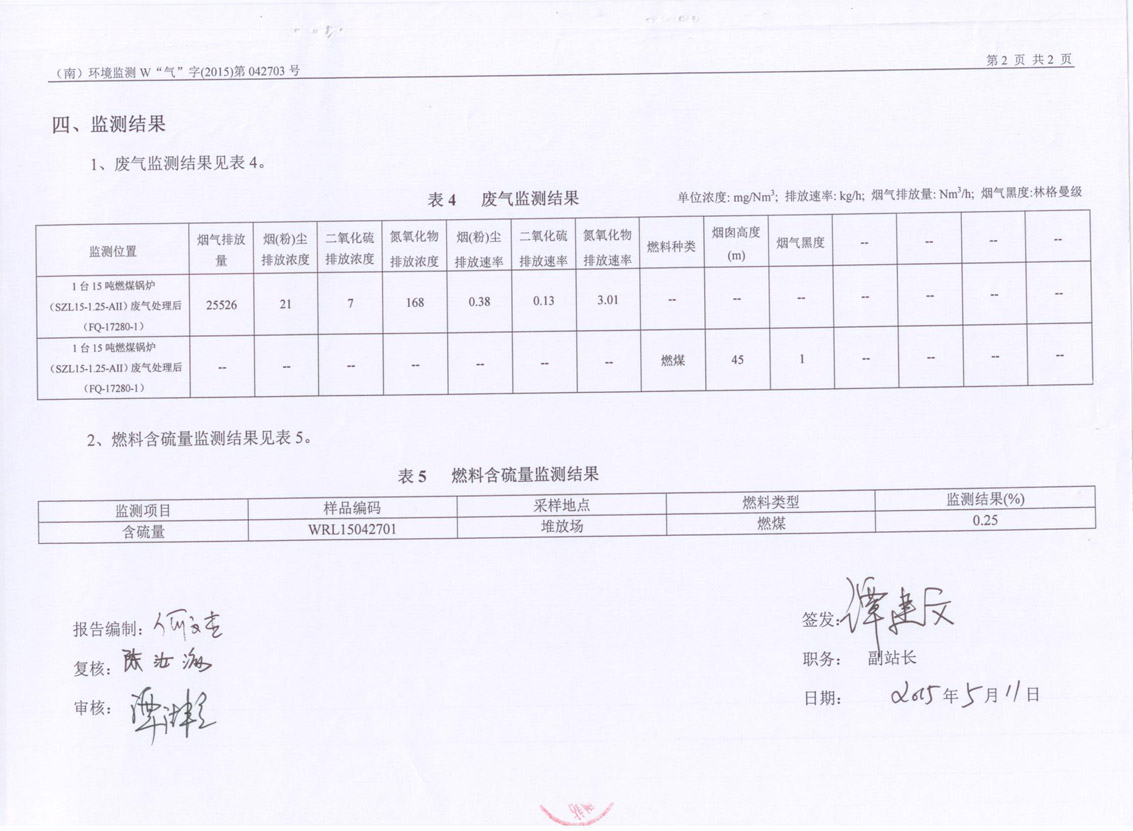 （南）环境监测 W“气”字(2015)第 042703 号
第 2 页 共 2 页
四、监测结果
1、废气监测结果见表 4。
表 4 废气监测结果
单位浓度: mg/Nm³; 排放速率: kg/h; 烟气排放量: Nm³/h; 烟气黑度:林格曼级
监测位置 烟气排放量 烟(粉)尘排放浓度 二氧化硫排放浓度 氮氧化物排放浓度 烟(粉)尘排放速率 二氧化硫排放速率 氮氧化物排放速率 燃料种类 烟囱高度(m) 烟气黑度 -- -- -- --
1 台 15 吨燃煤锅炉（SZL15-1.25-AII）废气处理后（FQ-17280-1） 25526 21 7 168 0.38 0.13 3.01 -- -- -- -- -- -- --
1 台 15 吨燃煤锅炉（SZL15-1.25-AII）废气处理后（FQ-17280-1） -- -- -- -- -- -- -- 燃煤 45 1 -- -- -- --
2、燃料含硫量监测结果见表 5。
表 5 燃料含硫量监测结果
监测项目 样品编码 采样地点 燃料类型 监测结果(%)
含硫量 WRL15042701 堆放场 燃煤 0.25
报告编制:
复核:
审核:
签发: 谭建文
职务: 副站长
日期: 2015 年 5 月 11 日